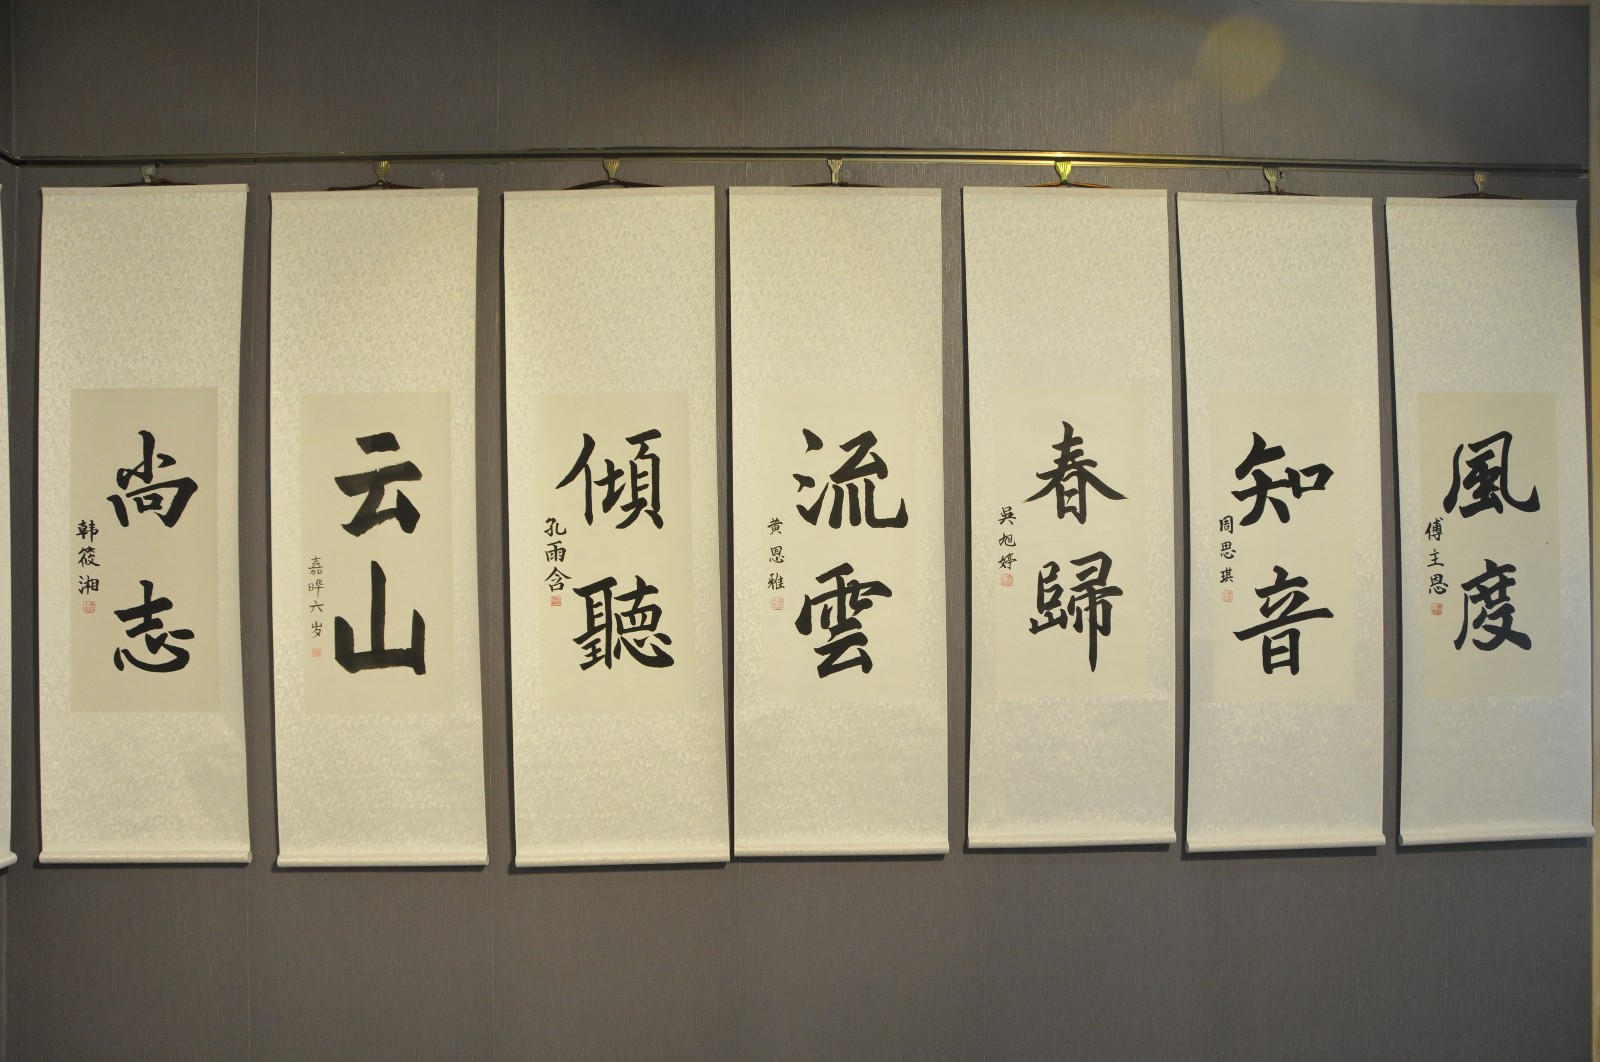 尚志
韩筱湘
云山
嘉晔六岁
傾聽
孔雨含
流雲
黄恩雅
春歸
吳旭婷
知音
周思琪
風度
傅主恩